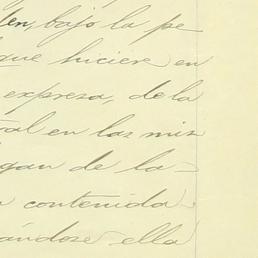 len, bajo la pe
que hiciere en
expresa, de la
ral en las mis
gan de la-
a contenida
ándose ella